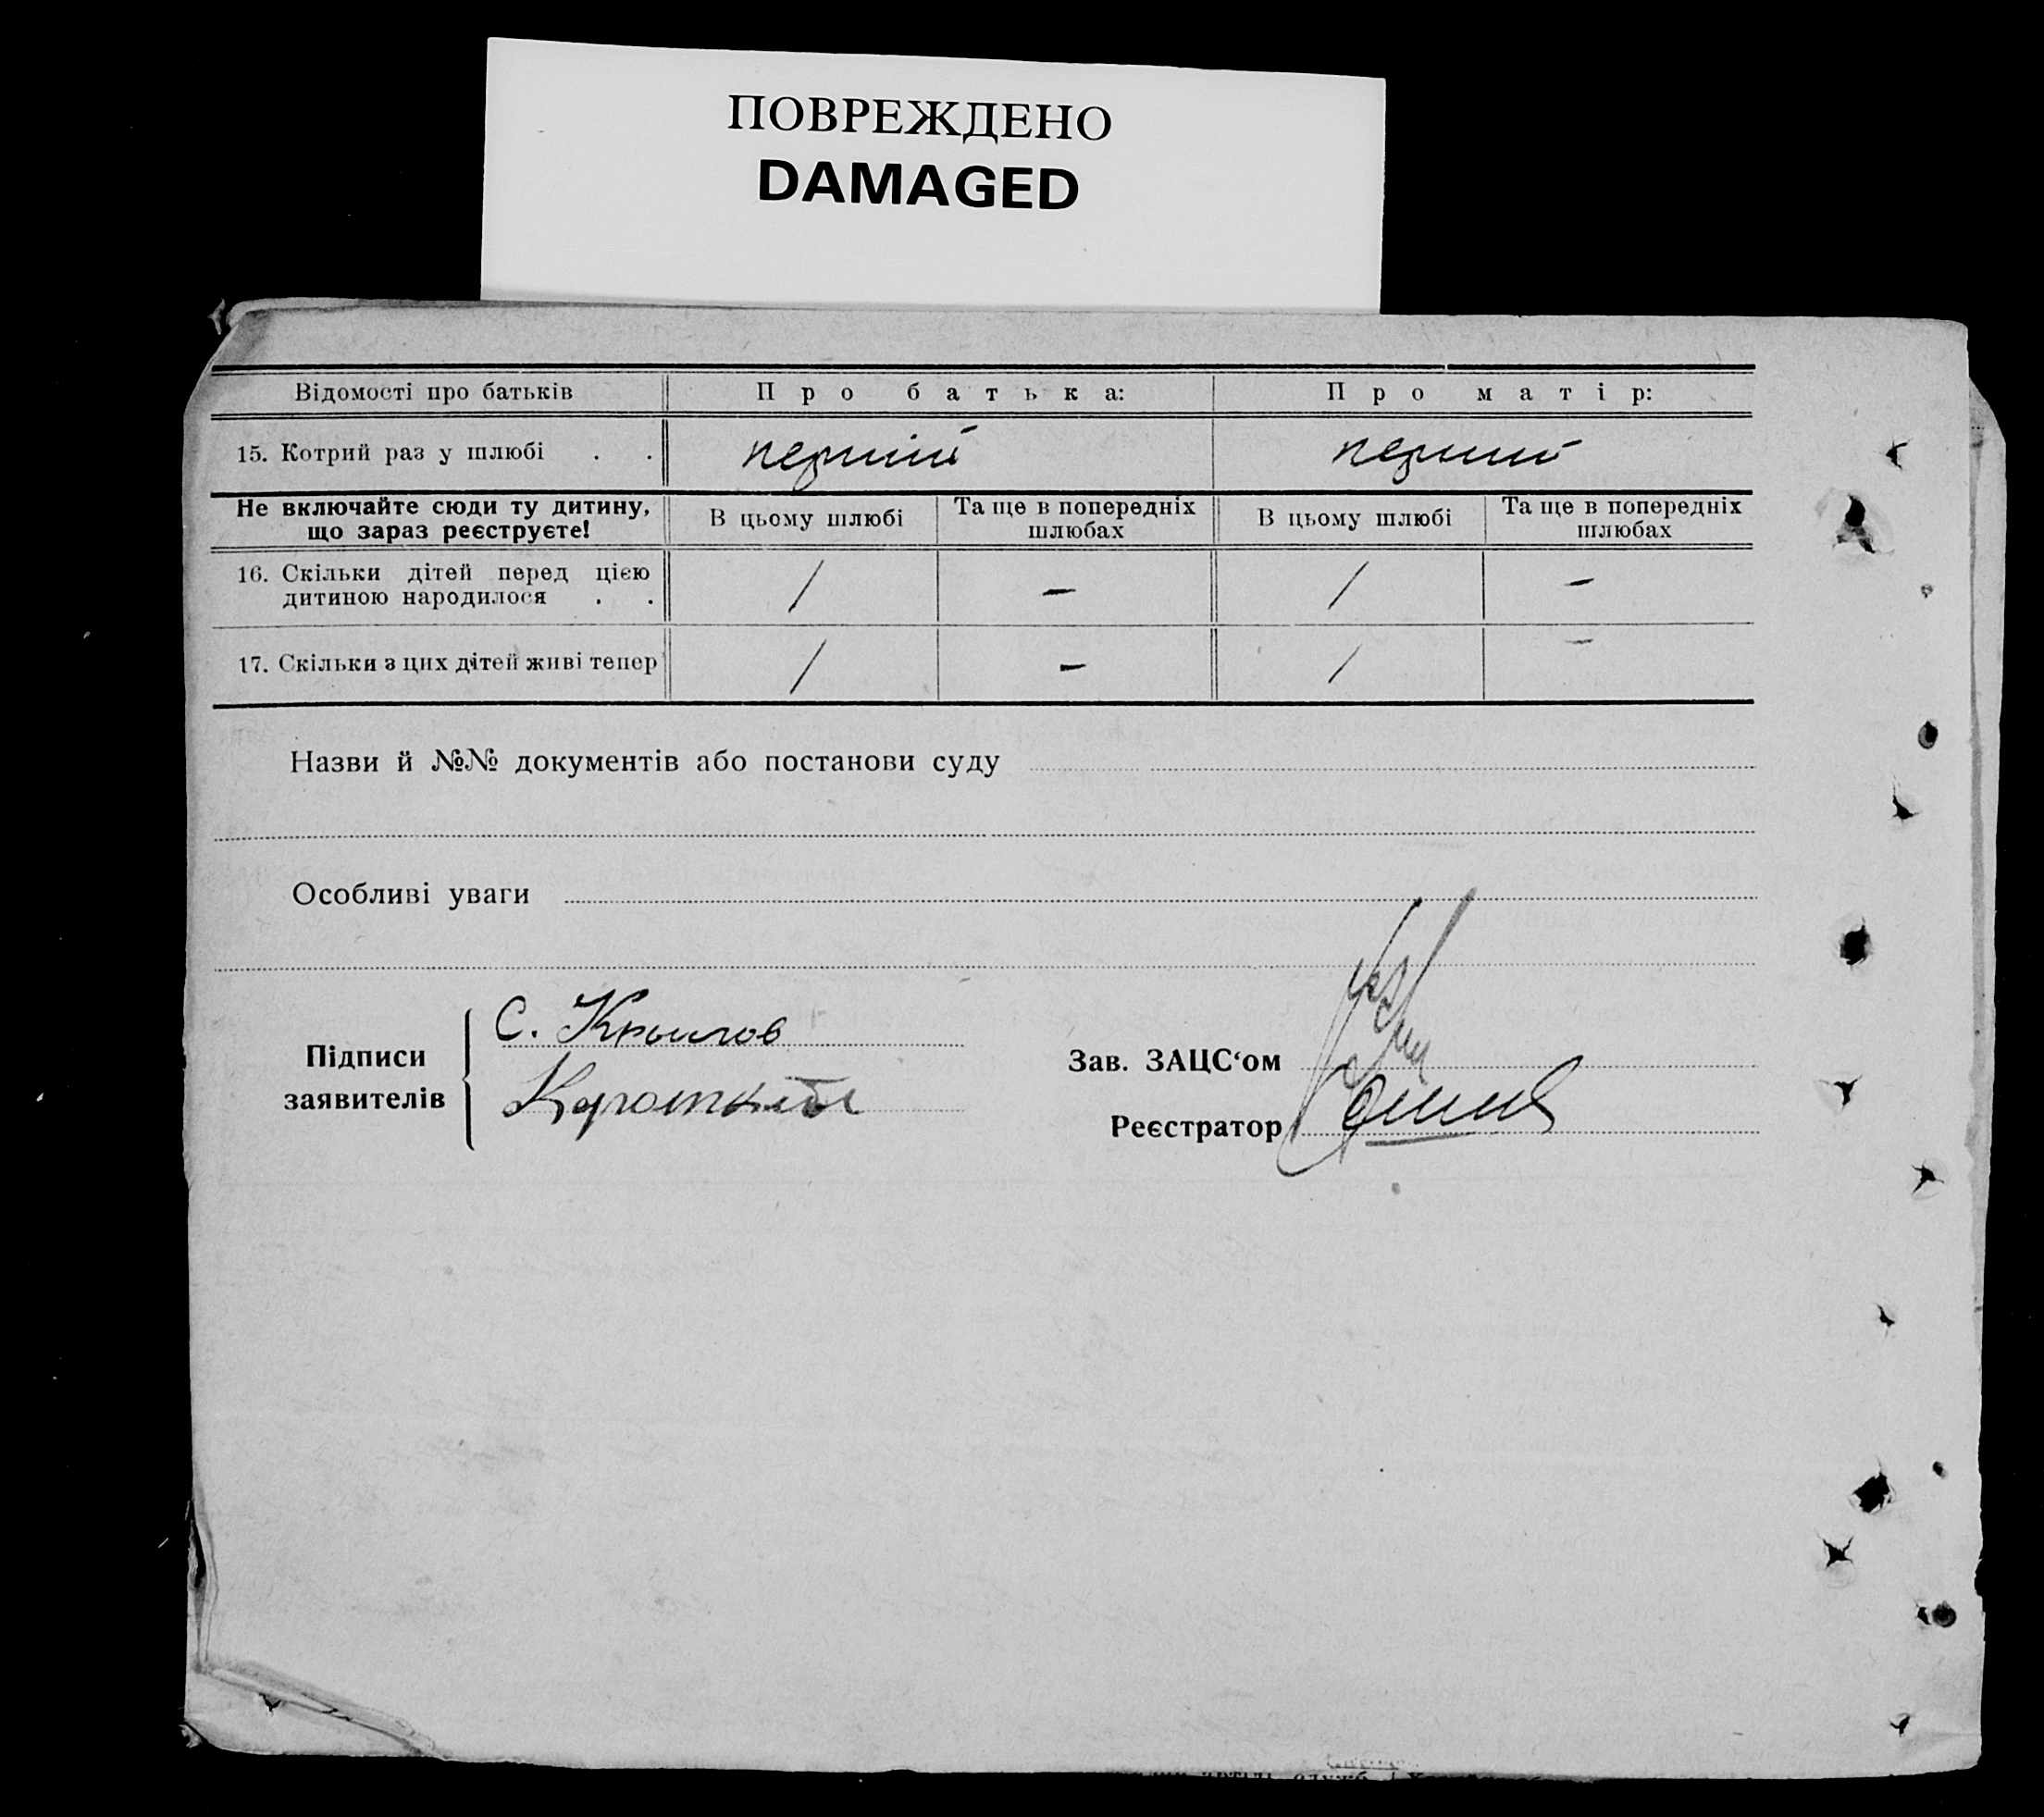 ПОВРЕЖДЕНО
DAMAGED
Відомості про батьків Про батька: Про матір:
15. Котрий раз у шлюбі . . перший перший
Не включайте сюди ту дитину,
що зараз реєструєте!
В цьому шлюбі
Та ще в попередніх
шлюбах
В цьому шлюбі
Та ще в попередніх
шлюбах
16. Скільки дітей перед цією
дитиною народилося . . / – / –
17. Скільки з цих дітей живі тепер / – / –
Назви й №№ документів або постанови суду
Особливі уваги
Підписи
заявителів
С. Крылов
Зав. ЗАЦС‘ом
Реєстратор